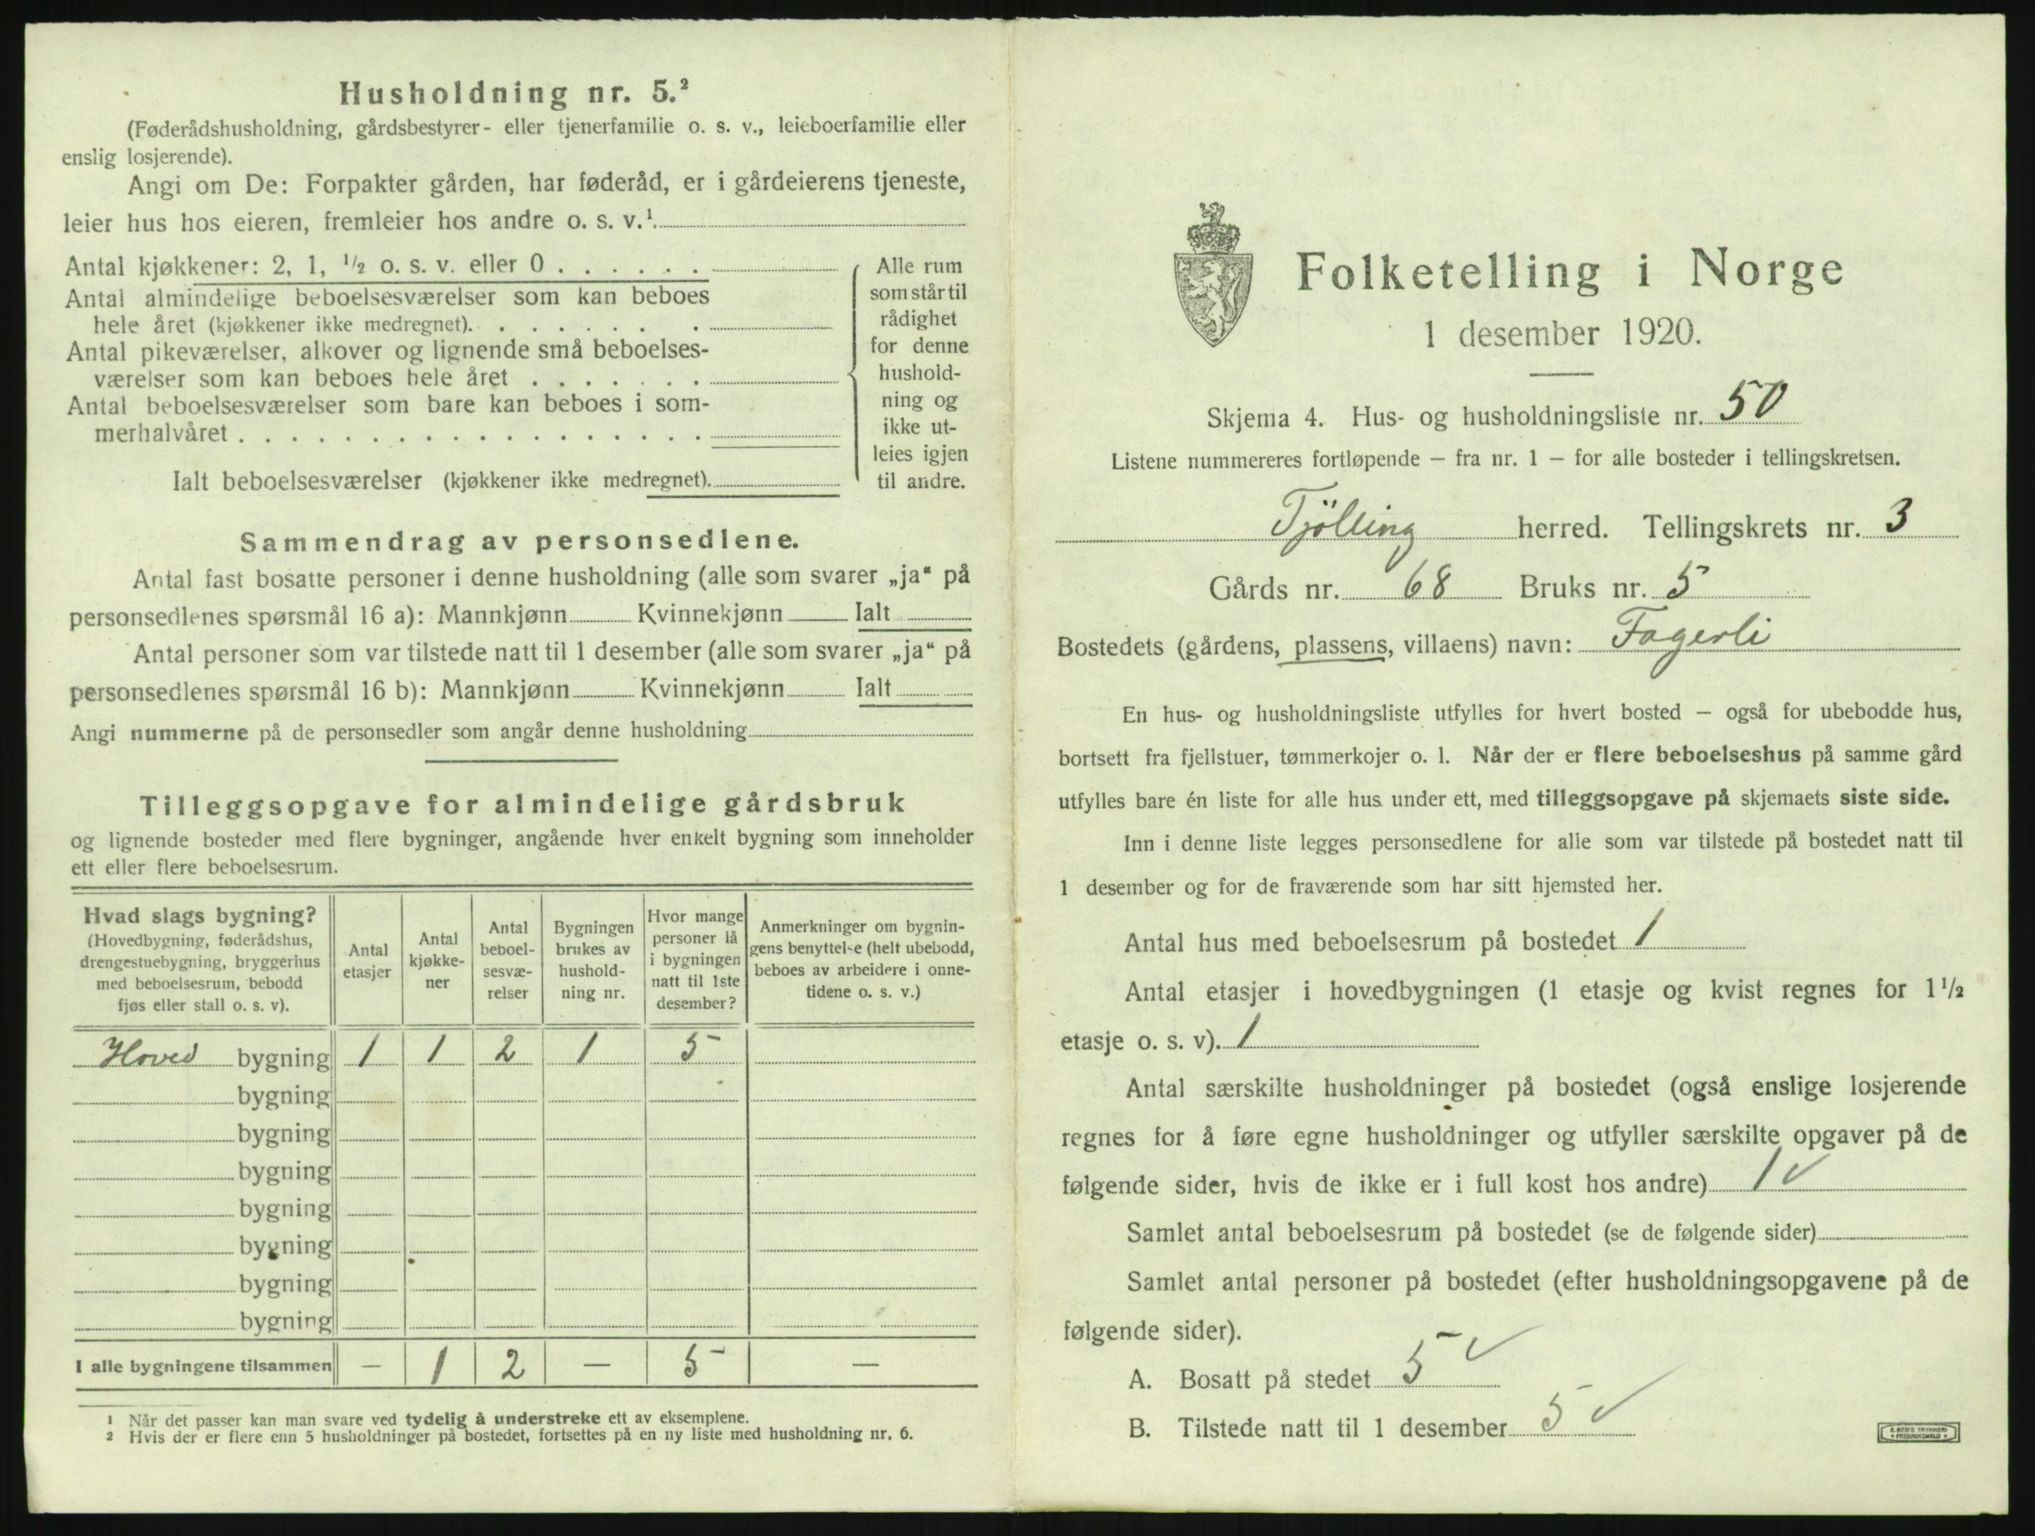 Husholdning nr. 5.²
(Føderådshusholdning, gårdsbestyrer- eller tjenerfamilie o. s. v., leieboerfamilie eller
enslig losjerende).
Angi om De: Forpakter gården, har føderåd, er i gårdeierens tjeneste,
leier hus hos eieren, fremleier hos andre o. s. v.¹
Antal kjøkkener: 2, 1, ½ o. s. v. eller 0 . . . . . .
Antal almindelige beboelsesværelser som kan beboes
hele året (kjøkkener ikke medregnet). . . . . . . .
Antal pikeværelser, alkover og lignende små beboelses-
værelser som kan beboes hele året . . . . . . .
Antal beboelsesværelser som bare kan beboes i som-
merhalvåret . . . . . . . . . . . . . . . . . .
Ialt beboelsesværelser (kjøkkener ikke medregnet).
Alle rum
som står til
rådighet
for denne
hushold-
ning og
ikke ut-
leies igjen
til andre.
Sammendrag av personsedlene.
Antal fast bosatte personer i denne husholdning (alle som svarer „ja“ på
personsedlenes spørsmål 16 a): Mannkjønn Kvinnekjønn Ialt
Antal personer som var tilstede natt til 1 desember (alle som svarer „ja“ på
personsedlenes spørsmål 16 b): Mannkjønn Kvinnekjønn Ialt
Angi nummerne på de personsedler som angår denne husholdning
Tilleggsopgave for almindelige gårdsbruk
og lignende bosteder med flere bygninger, angående hver enkelt bygning som inneholder
ett eller flere beboelsesrum.
Hvad slags bygning?
(Hovedbygning, føderådshus,
drengestuebygning, bryggerhus
med beboelsesrum, bebodd
fjøs eller stall o. s. v).
Antal
etasjer
Antal
kjøkke-
ner
Antal
beboel-
sesvæ-
relser
Bygningen
brukes av
hushold-
ning nr.
Hvor mange
personer lå
i bygningen
natt til 1ste
desember?
Anmerkninger om bygnin-
gens benyttelse (helt ubebodd,
beboes av arbeidere i onne-
tidene o. s. v.)
Hoved bygning 1 1 2 1 5
bygning
bygning
bygning
bygning
bygning
bygning
bygning
I alle bygningene tilsammen — 1 2 — 5 —
¹ Når det passer kan man svare ved tydelig å understreke ett av eksemplene.
² Hvis der er flere enn 5 husholdninger på bostedet, fortsettes på en ny liste med husholdning nr. 6.
Folketelling i Norge
1 desember 1920.
Skjema 4. Hus- og husholdningsliste nr. 50
Listene nummereres fortløpende – fra nr. 1 – for alle bosteder i tellingskretsen.
Tjölling herred. Tellingskrets nr. 3
Gårds nr. 68 Bruks nr. 5
Bostedets (gårdens, plassens, villaens) navn: Fagerli
En hus- og husholdningsliste utfylles for hvert bosted – også for ubebodde hus,
bortsett fra fjellstuer, tømmerkojer o. l. Når der er flere beboelseshus på samme gård
utfylles bare én liste for alle hus under ett, med tilleggsopgave på skjemaets siste side.
Inn i denne liste legges personsedlene for alle som var tilstede på bostedet natt til
1 desember og for de fraværende som har sitt hjemsted her.
Antal hus med beboelsesrum på bostedet 1
Antal etasjer i hovedbygningen (1 etasje og kvist regnes for 1½
etasje o. s. v). 1
Antal særskilte husholdninger på bostedet (også enslige losjerende
regnes for å føre egne husholdninger og utfyller særskilte opgaver på de
følgende sider, hvis de ikke er i full kost hos andre) 1 ✓
Samlet antal beboelsesrum på bostedet (se de følgende sider)
Samlet antal personer på bostedet (efter husholdningsopgavene på de
følgende sider).
A. Bosatt på stedet 5 ✓
B. Tilstede natt til 1 desember 5 ✓